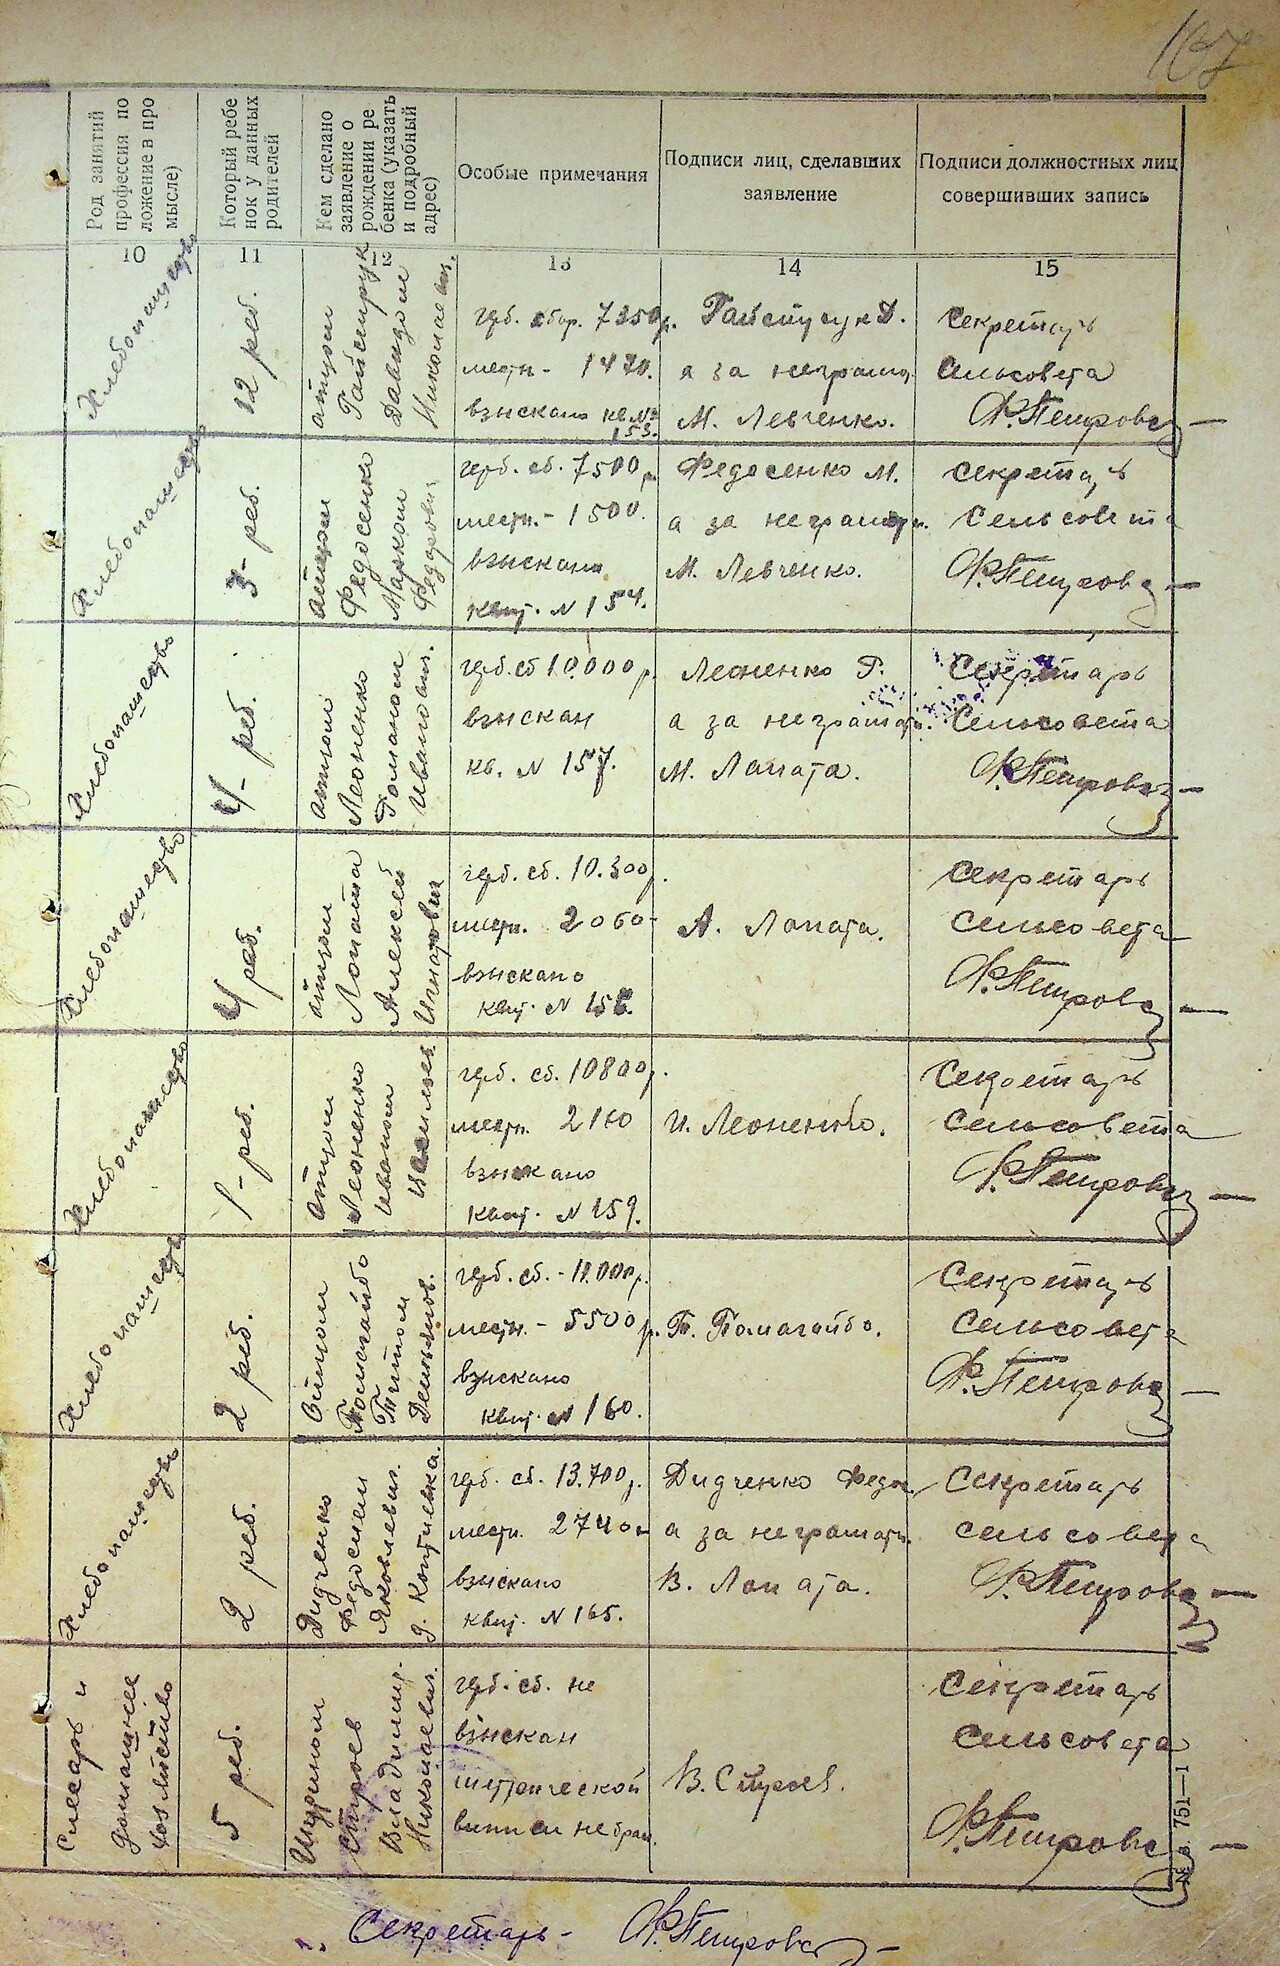 167
Род занятий
профессия по
ложение в про
мысле)
Который ребе
нок у данных
родителей
Кем сделано
заявление о
рождении ре
бенка (указать
и подробный
адрес)
Особые примечания
Подписи лиц, сделавших
заявление
Подписи должностных лиц
совершивших запись
10
11
12
13
14
15
Хлебопашество
12 реб.
отцом
Давидом
Николаевич.
герб. сбор. 7350р.
местн - 1470.
взыскано кв. №
153.
а за неграмотн.
М. Левченко.
Секретарь
Сельсовета
Ф. Петрова
Хлебопашество
3 - реб.
отцом
Федосенко
Марком
Федорович
герб. сб. 7500 р
местн. - 1500.
взыскано
квит. N 154.
Федосенко М.
а за неграмотн.
М. Левченко.
Секретарь
Сельсовета
Ф. Петрова
Хлебопашество
4 - реб.
отцом
Леоненко
Романом
Иванович.
герб. сб 10.000 р.
взыскан
кв. N 157.
Леоненко Р.
а за неграмотн.
М. Лапата.
Секретарь
Сельсовета
Ф. Петрова
Хлебопашество
4 реб.
отцом
Лопата
Алексей
Игнатович
герб. сб. 10.300р.
местн. 2060-
взыскано
квит. N 158.
А. Лапата.
Секретарь
сельсовета
Ф. Петрова
Хлебопашество
1 - реб.
отцом
Леоненко
Иваном
герб. сб. 10800р.
местн. 2160
взыскано
квит. N 159.
И. Леоненко.
Секретарь
сельсовета
Ф. Петрова
Хлебопашество
2 реб.
Помогайбо
Титом
Демьянов.
герб. сб. - 11.000р.
местн. - 5500 р.
взыскано
квит. N 160.
Т. Помагайбо.
Секретарь
сельсовета
Ф. Петрова
Хлебопашество
2 реб.
Дидченко
Федосием
Яковлевич.
герб. сб. 13.700р.
местн. 2740
взыскано
квит. N 165.
Дидченко Федос.
а за неграмотн.
В. Лапата.
Секретарь
сельсовета
Ф. Петрова
Слесарь и
домашнее
хозяйство
5 реб.
Строев
Владимир.
Николаевич.
герб. сб. не
взыскан
метрической
выписи не брал.
В. Строев.
Секретарь
сельсовета
Ф. Петрова
751—1
Секретарь - Ф. Петрова